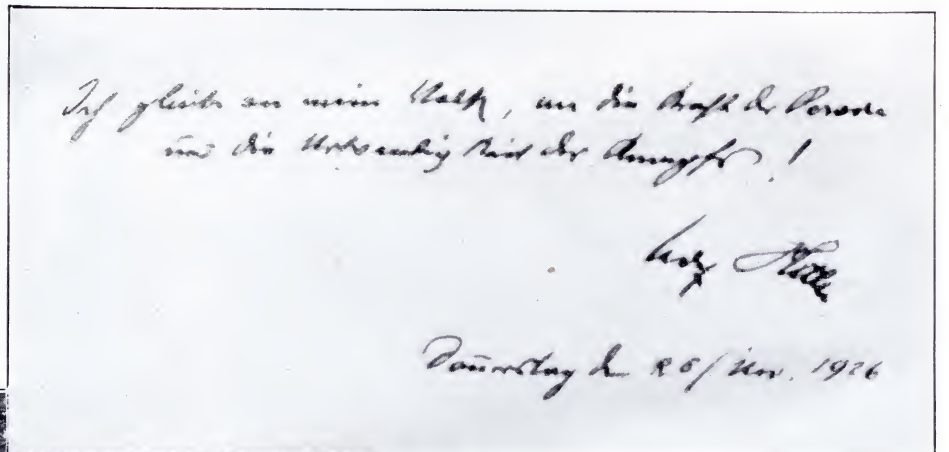 Ich glaube an mein Volk, an die Kraft der Person
und die Notwendigkeit des Kampfes!
Adolf Hitler
Donnerstag den 25/ Nov. 1926